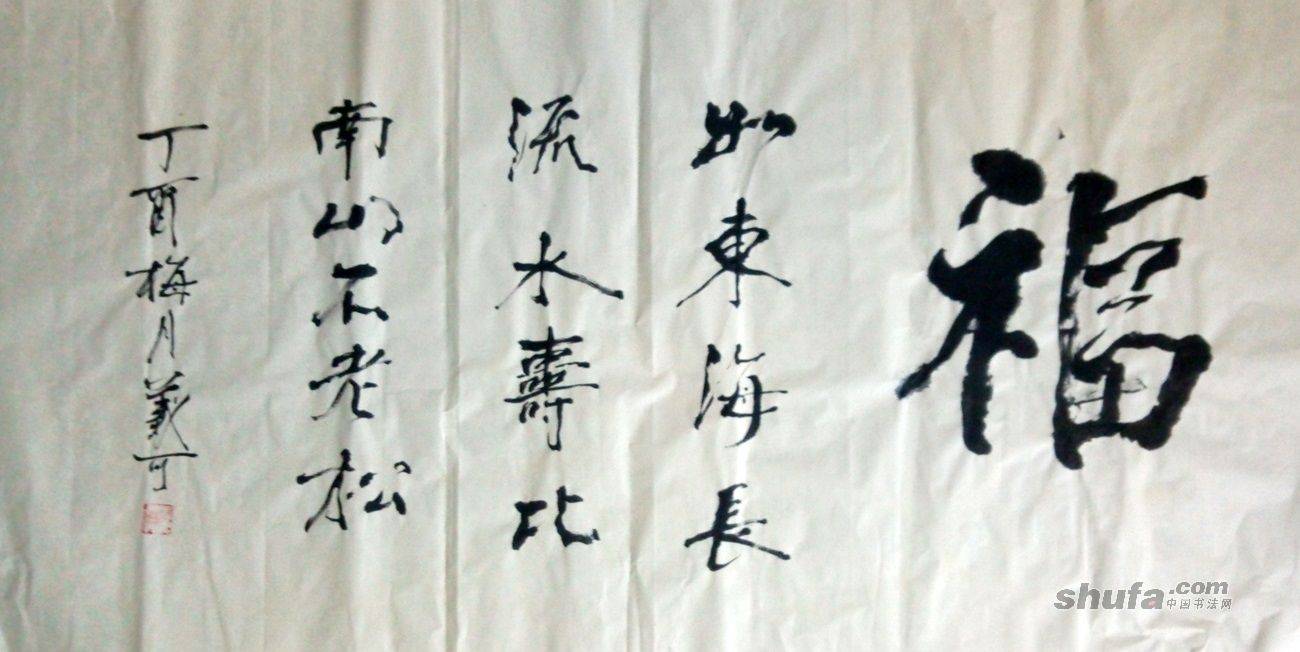 福
如東海長
流水壽比
南山不老松
丁酉梅月義可
shufa.com
中国书法网